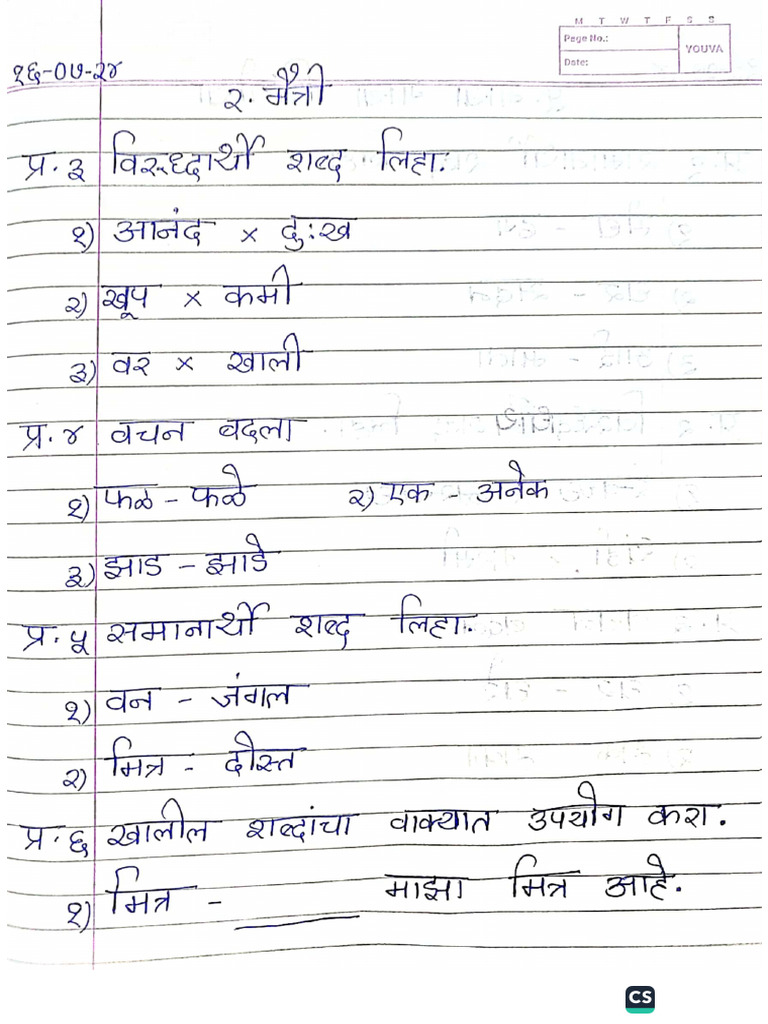 M T W T F S S
Page No.:
YOUVA
Date:
१६-०७-२४
२. मैत्री
प्र. ३ विरूध्दार्थी शब्द लिहा.
१) आनंद × दुःख
२) खूप × कमी
३) वर × खाली
प्र. ४ वचन बदला
१) फळ - फळे २) एक - अनेक
३) झाड - झाडे
प्र. ५ समानार्थी शब्द लिहा.
१) वन - जंगल
२) मित्र - दोस्त
प्र. ६ खालील शब्दांचा वाक्यात उपयोग करा.
१) मित्र - ______ माझा मित्र आहे.
CS